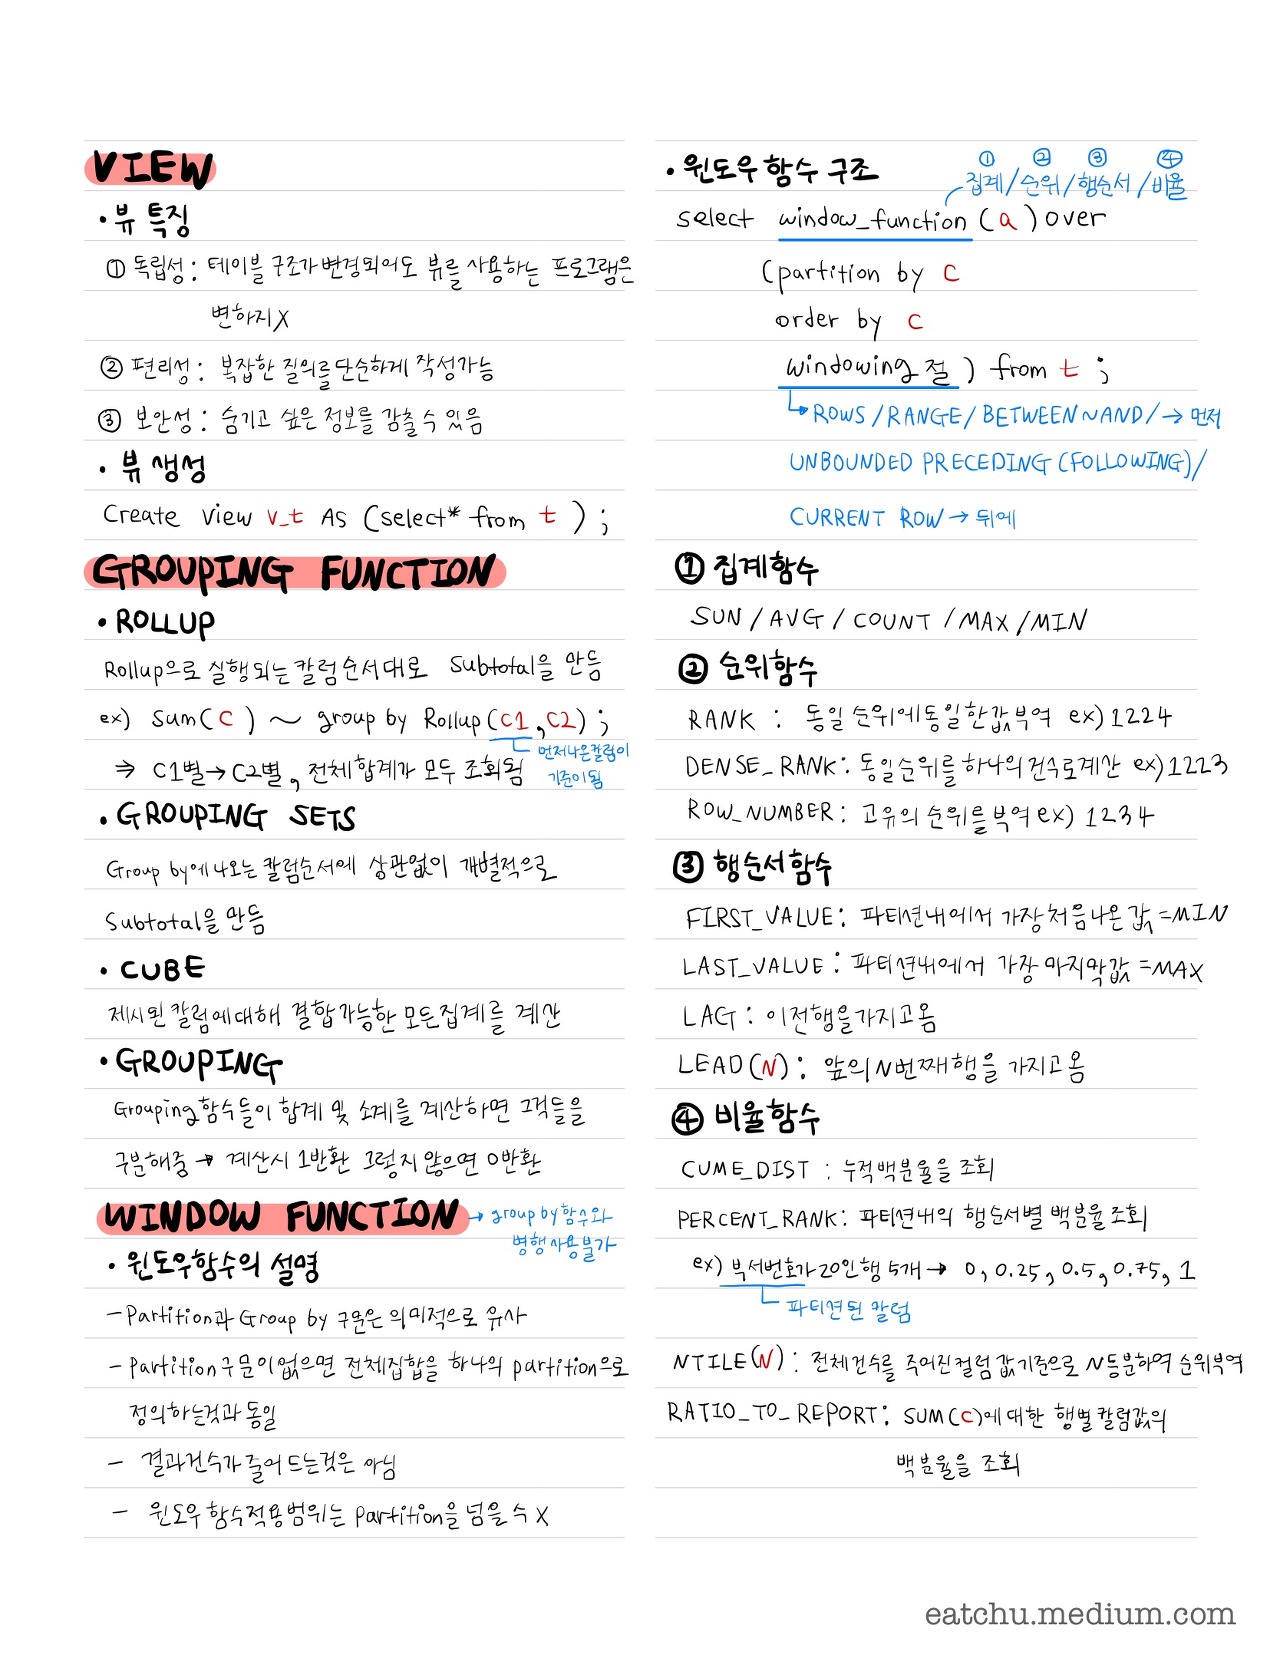 VIEW
• 뷰 특징
① 독립성 : 테이블 구조가 변경되어도 뷰를 사용하는 프로그램은
변하지 X
② 편리성 : 복잡한 질의를 단순하게 작성가능
③ 보안성 : 숨기고 싶은 정보를 감출 수 있음
• 뷰 생성
Create view v_t AS (select* from t ) ;
GROUPING FUNCTION
• ROLLUP
Rollup으로 실행되는 칼럼순서대로 Subtotal을 만듬
ex) sum( c ) ~ group by Rollup(c1,c2) ;
먼저나온칼럼이
기준이됨
⇒ C1별→C2별, 전체합계가 모두 조회됨
• GROUPING SETS
Group by에 나오는 칼럼순서에 상관없이 개별적으로
Subtotal을 만듬
• CUBE
제시된 칼럼에대해 결합가능한 모든집계를 계산
• GROUPING
Grouping함수들이 합계 및 소계를 계산하면 그것들을
구분해줌 → 계산시 1반환 그렇지 않으면 0반환
WINDOW FUNCTION → group by함수와
병행사용불가
• 윈도우함수의 설명
- Partition과 Group by 구문은 의미적으로 유사
- Partition구문이 없으면 전체집합을 하나의 partition으로
정의하는것과 동일
- 결과건수가 줄어 드는것은 아님
- 윈도우 함수적용범위는 Partition을 넘을 수 X
• 윈도우함수 구조
① ② ③ ④
집계/순위/행순서/비율
select window_function (a) over
(partition by c
order by c
windowing절 ) from t ;
↳ ROWS/RANGE/BETWEEN~AND/→ 먼저
UNBOUNDED PRECEDING (FOLLOWING)/
CURRENT ROW → 뒤에
① 집계함수
SUN / AVG / COUNT / MAX / MIN
② 순위함수
RANK : 동일 순위에동일한값부여 ex) 1224
DENSE_RANK : 동일순위를 하나의 건수로계산 ex) 1223
ROW_NUMBER : 고유의 순위를 부여 ex) 1234
③ 행순서함수
FIRST_VALUE : 파티션내에서 가장처음나온 값 =MIN
LAST_VALUE : 파티션내에서 가장 마지막값 =MAX
LAG : 이전행을가지고옴
LEAD(N) : 앞의 N번째행을 가지고 옴
④ 비율함수
CUME_DIST : 누적백분율을 조회
PERCENT_RANK : 파티션내의 행순서별 백분율 조회
ex) 부서번호가 20인행 5개 → 0, 0.25, 0.5, 0.75, 1
파티션된 칼럼
NTILE(N) : 전체건수를 주어진컬럼 값기준으로 N등분하여 순위부여
RATIO_TO_REPORT : SUM(c)에 대한 행별 칼럼값의
백분율을 조회
eatchu.medium.com